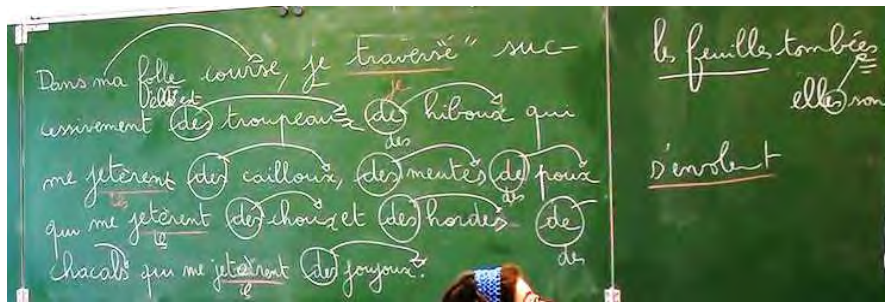 Dans ma folle course, je traversé" suc-
elle est
je
cessivement des troupeaux de hiboux qui
des
me jetèrent des cailloux, des meutes de poux
des
qui me jetèrent des choux et des hordes de
des
chacals qui me jetèrent des joujoux.
les feuilles tombées
elles son
s'envolent